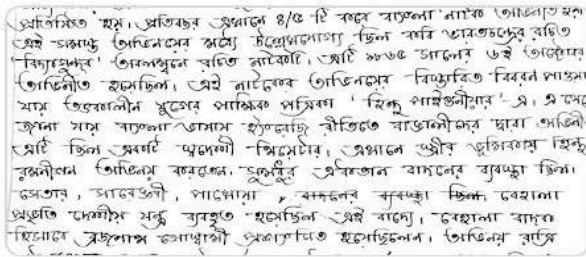 প্রতিষ্ঠিত হয়। প্রতিবছর এখানে ৪/৫ টি করে বাংলা নাটক অভিনীত হত
এই সমস্ত অভিনয়ের মধ্যে উল্লেখযোগ্য ছিল কবি ভারতচন্দ্রের রচিত
'বিদ্যাসুন্দর' অবলম্বনে রচিত নাটকটি। এটি ১৮৩৫ সালের ৬ই অক্টোবর
অভিনীত হয়েছিল। এই নাটকের অভিনয়ের বিস্তারিত বিবরন পাওয়া
যায় তৎকালীন যুগের পাক্ষিক পত্রিকা 'হিন্দু পাইওনীয়ার' এ। এ থেকে
জানা যায় বাংলা ভাষায় ইংরেজি রীতিতে বাঙালীদের দ্বারা অভিনী
এটি ছিল একটি স্বদেশী থিয়েটার। এখানে স্ত্রীর ভূমিকায় হিন্দু
রমনীগন অভিনয় করতেন। সুমধুর ঐকতান বাদনের ব্যবস্থা ছিল।
সেতার, সারেঙ্গী, পাখোয়া, বাদনের ব্যবস্থা ছিল বেহালা
প্রভৃতি দেশীয় যন্ত্র ব্যবহৃত হয়েছিল এই বাদ্যে। বেহালা বাদক
হিসাবে ব্রজনাথ গোস্বামী প্রশংসিত হয়েছিলেন। অভিনয় রাত্রি